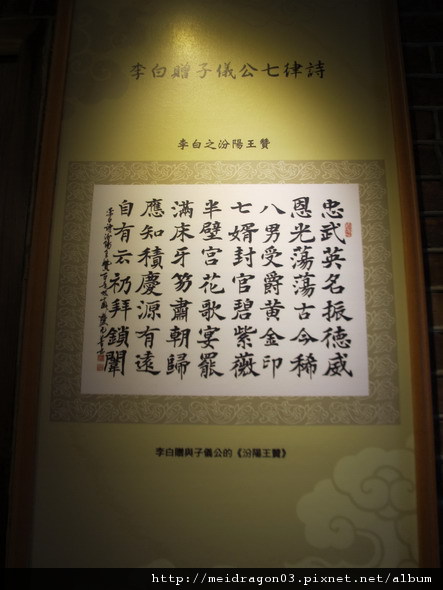 李白贈子儀公七律詩
李白之汾陽王贊
忠武英名振德威
恩光蕩蕩古今稀
八男受爵黃金印
七婿封官碧紫薇
半壁宮花歌宴罷
滿床牙笏肅朝歸
應知積慶源有遠
自有云礽拜鎖闈
李白贈與子儀公的《汾陽王贊》
http://meidragon03.pixnet.net/album